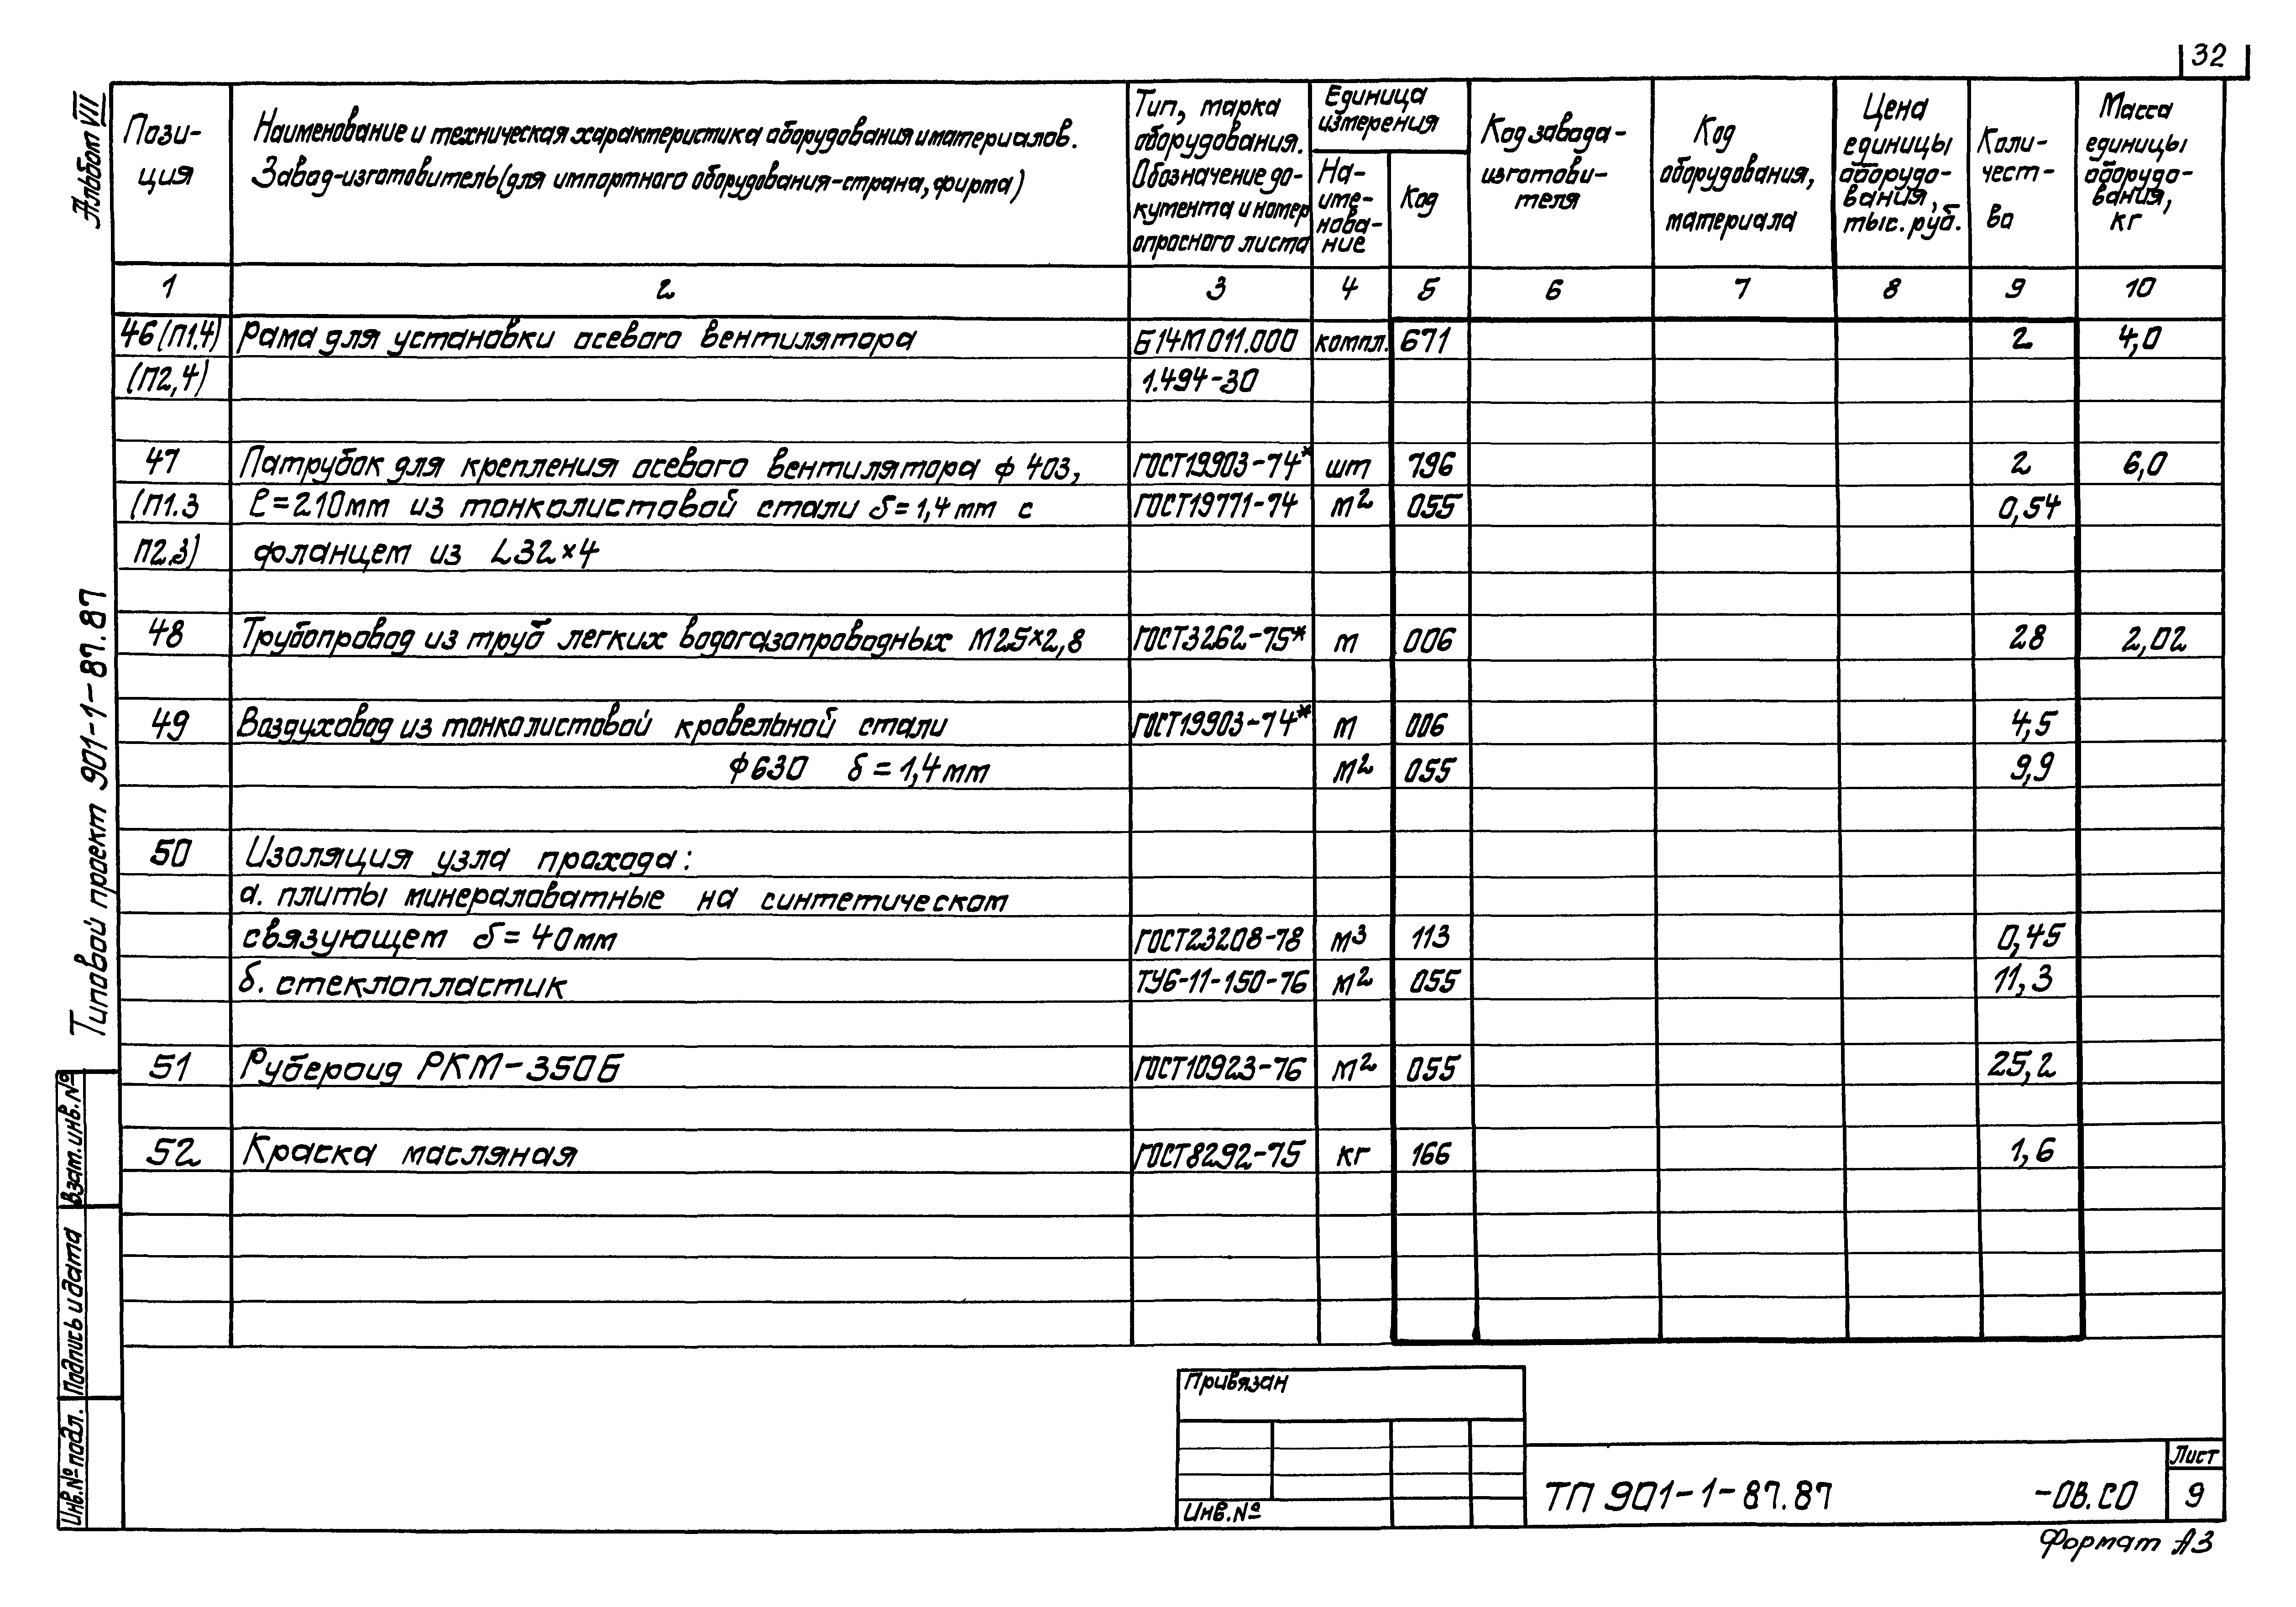 32
Альбом VII
Типовой проект 901-1-87.87
Взам.инв.№
Подпись и дата
Инв.№подл.
Пози-
ция
Наименование и техническая характеристика оборудования и материалов.
Завод-изготовитель (для импортного оборудования-страна, фирма)
Тип, марка
оборудования.
Обозначение до-
кумента и номер
опросного листа
Единица
измерения
На-
име-
нова-
ние
Код
Код завода-
изготови-
теля
Код
оборудования,
материала
Цена
единицы
оборудо-
вания,
тыс. руб.
Коли-
чест-
во
Масса
единицы
оборудо-
вания,
кг
1 2 3 4 5 6 7 8 9 10
46 (П1.4) Рама для установки осевого вентилятора Б14М011.000 компл. 671 2 4,0
(П2,4) 1.494-30
47 Патрубок для крепления осевого вентилятора ф 403, ГОСТ19903-74* шт 796 2 6,0
(П1.3 ℓ=210мм из тонколистовой стали δ=1,4мм с ГОСТ19771-74 м² 055 0,54
П2.3) фланцем из L32×4
48 Трубопровод из труб легких водогазопроводных М25×2,8 ГОСТ3262-75* м 006 28 2,02
49 Воздуховод из тонколистовой кровельной стали ГОСТ19903-74* м 006 4,5
ф630 δ=1,4мм м² 055 9,9
50 Изоляция узла прохода:
а. плиты минераловатные на синтетическом
связующем δ=40мм ГОСТ23208-78 м³ 113 0,45
б. стеклопластик ТУ6-11-150-76 м² 055 11,3
51 Рубероид РКМ-350Б ГОСТ10923-76 м² 055 25,2
52 Краска масляная ГОСТ8292-75 кг 166 1,6
Привязан
Инв.№
ТП 901-1-87.87 -ОВ.СО
Лист
9
Формат А3